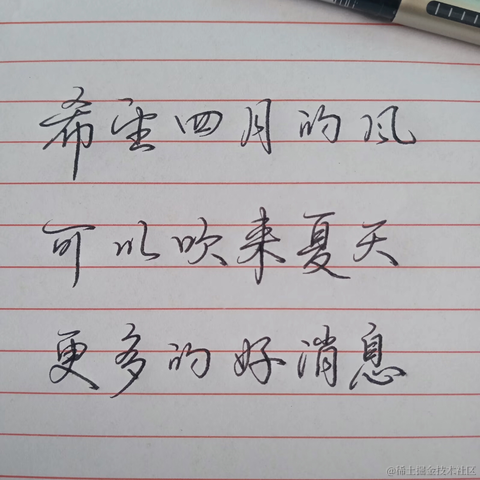 希望四月的风
可以吹来夏天
更多的好消息
@稀土掘金技术社区